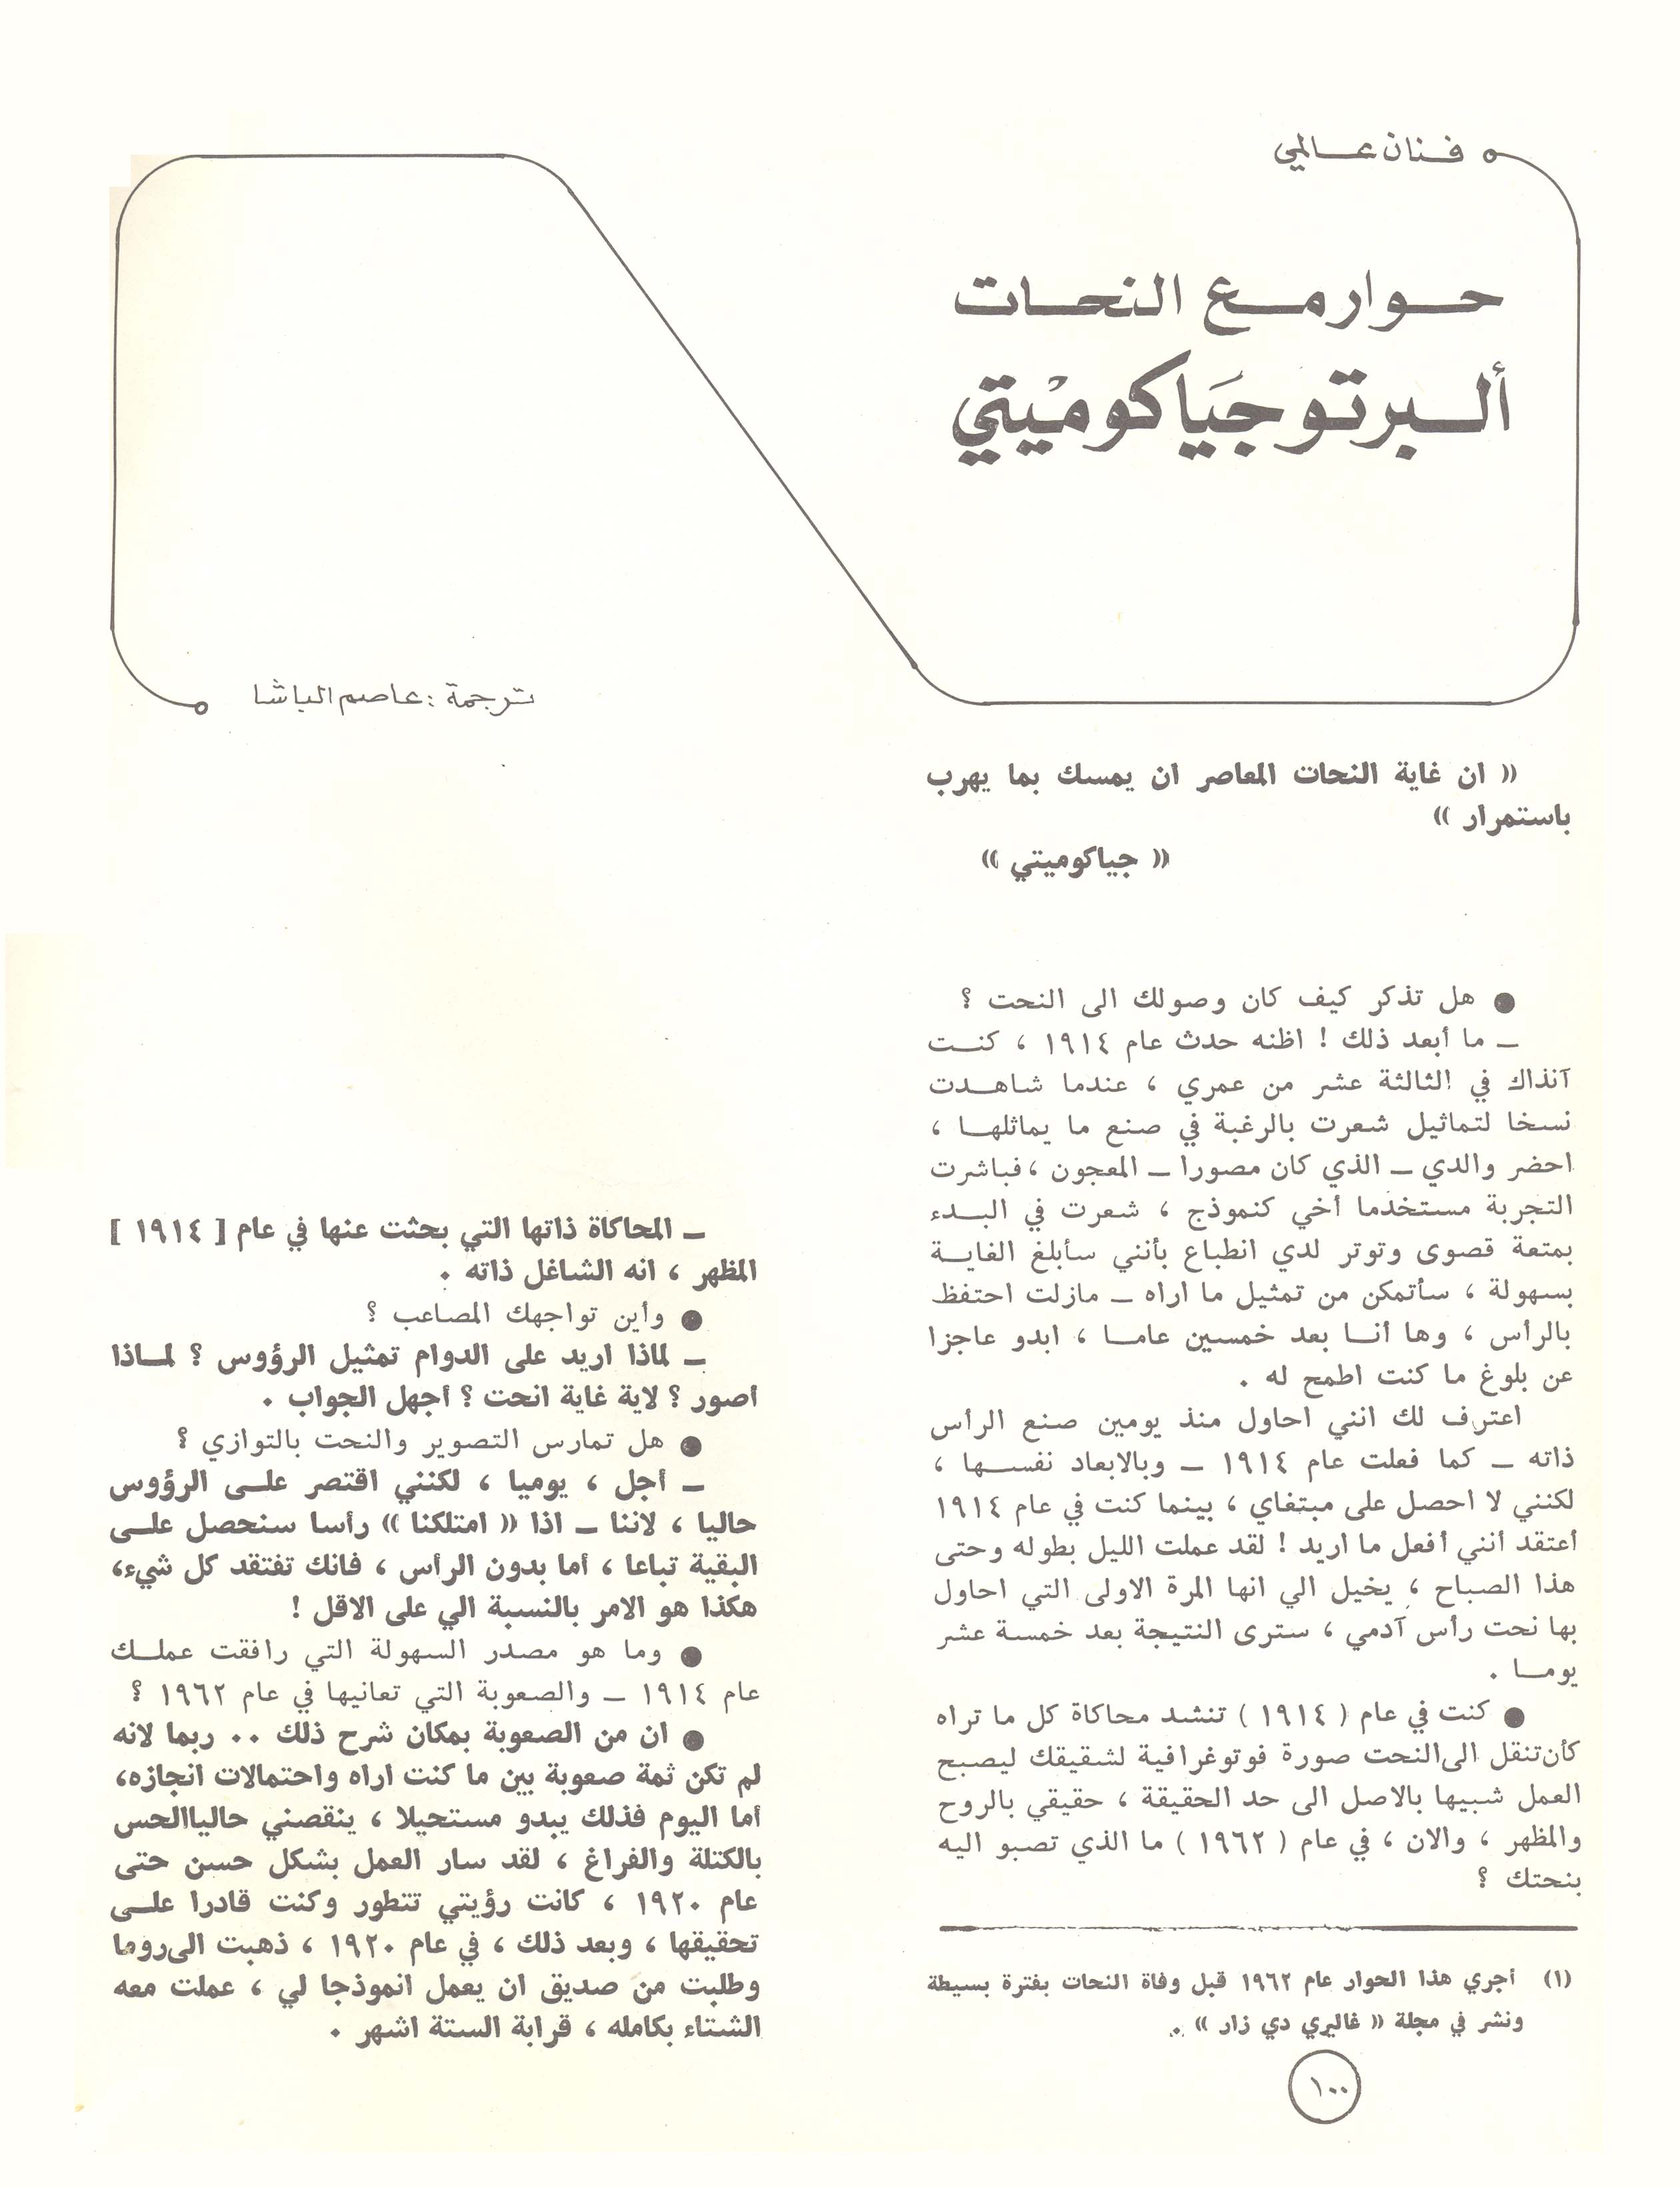 فنان عالمي
حوار مع النحات
ألبرتو جياكوميتي
ترجمة : عاصم الباشا
(( ان غاية النحات المعاصر ان يمسك بما يهرب
باستمرار ))
(( جياكوميتي ))
● هل تذكر كيف كان وصولك الى النحت ؟
ـ ما أبعد ذلك ! اظنه حدث عام ١٩١٤ ، كنت
آنذاك في الثالثة عشر من عمري ، عندما شاهدت
نسخا لتماثيل شعرت بالرغبة في صنع ما يماثلها ،
احضر والدي ـ الذي كان مصورا ـ المعجون ، فباشرت
التجربة مستخدما أخي كنموذج ، شعرت في البدء
بمتعة قصوى وتوتر لدي انطباع بأنني سأبلغ الغاية
بسهولة ، سأتمكن من تمثيل ما اراه ـ مازلت احتفظ
بالرأس ، وها أنا بعد خمسين عاما ، ابدو عاجزا
عن بلوغ ما كنت اطمح له .
اعترف لك انني احاول منذ يومين صنع الرأس
ذاته ـ كما فعلت عام ١٩١٤ ـ وبالابعاد نفسها ،
لكنني لا احصل على مبتغاي ، بينما كنت في عام ١٩١٤
أعتقد أنني أفعل ما اريد ! لقد عملت الليل بطوله وحتى
هذا الصباح ، يخيل الي انها المرة الاولى التي احاول
بها نحت رأس آدمي ، سترى النتيجة بعد خمسة عشر
يوما .
● كنت في عام ( ١٩١٤ ) تنشد محاكاة كل ما تراه
كأن تنقل الى النحت صورة فوتوغرافية لشقيقك ليصبح
العمل شبيها بالاصل الى حد الحقيقة ، حقيقي بالروح
والمظهر ، والان ، في عام ( ١٩٦٢ ) ما الذي تصبو اليه
بنحتك ؟
(١) أجري هذا الحوار عام ١٩٦٢ قبل وفاة النحات بفترة بسيطة
ونشر في مجلة (( غاليري دي زار )) .
ـ المحاكاة ذاتها التي بحثت عنها في عام [ ١٩١٤ ]
المظهر ، انه الشاغل ذاته .
● وأين تواجهك المصاعب ؟
ـ لماذا اريد على الدوام تمثيل الرؤوس ؟ لماذا
أصور ؟ لاية غاية انحت ؟ أجهل الجواب .
● هل تمارس التصوير والنحت بالتوازي ؟
ـ أجل ، يوميا ، لكنني اقتصر على الرؤوس
حاليا ، لاننا ـ اذا (( امتلكنا )) رأسا سنحصل على
البقية تباعا ، أما بدون الرأس ، فانك تفتقد كل شيء،
هكذا هو الامر بالنسبة الي على الاقل !
● وما هو مصدر السهولة التي رافقت عملك
عام ١٩١٤ ـ والصعوبة التي تعانيها في عام ١٩٦٢ ؟
● ان من الصعوبة بمكان شرح ذلك .. ربما لانه
لم تكن ثمة صعوبة بين ما كنت اراه واحتمالات انجازه،
أما اليوم فذلك يبدو مستحيلا ، ينقصني حاليا الحس
بالكتلة والفراغ ، لقد سار العمل بشكل حسن حتى
عام ١٩٢٠ ، كانت رؤيتي تتطور وكنت قادرا على
تحقيقها ، وبعد ذلك ، في عام ١٩٢٠ ، ذهبت الى روما
وطلبت من صديق ان يعمل انموذجا لي ، عملت معه
الشتاء بكامله ، قرابة الستة اشهر .
١٠٠